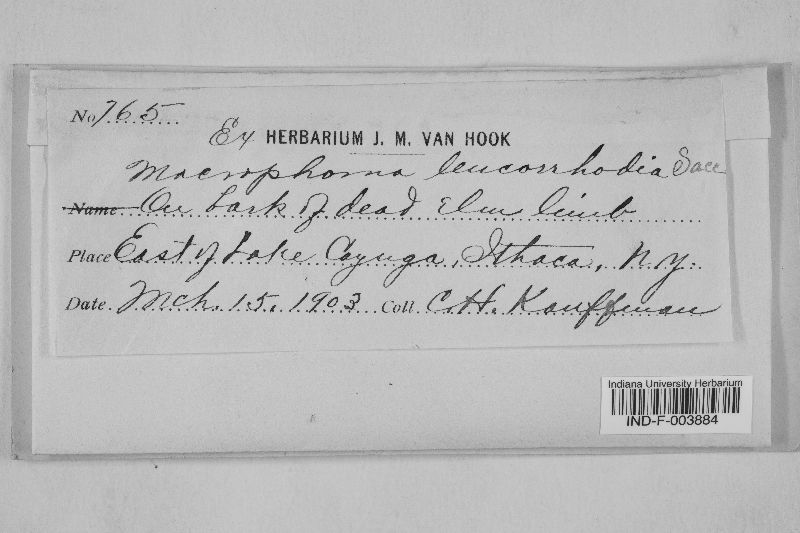 No 765
Ex HERBARIUM J. M. VAN HOOK
Macrophoma leucorrhodia Sacc
Name On bark of dead Elm limb
Place East of Lake Cayuga, Ithaca, N.Y.
Date Mch. 15. 1903 Coll C.H. Kauffman
Indiana University Herbarium
IND-F-003884